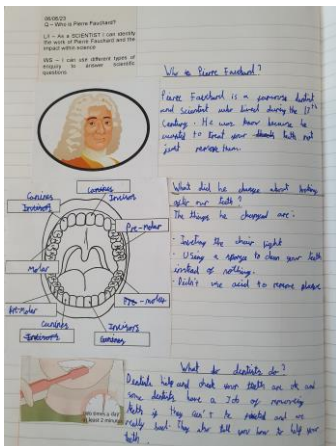 06/06/23
Q – Who is Pierre Fauchard?
LF – As a SCIENTIST I can identify
the work of Pierre Fauchard and the
impact within science
WS – I can use different types of
enquiry to answer scientific
questions
Who is Pierre Fauchard?
Pierre Fauchard is a famouse dentist
and Scientist who lived during the
Century. He was know because he
wanted to treat your teeth not
just remove them.
What did he change about looking
after our teeth?
The things he changed are.
the chair
Using a sponge to clean your teeth
instead of nothing.
Didn't use acid to remove plaque
Canines
Invisors
Canines
Invisors
Pre-Molar
Molar
Molar
Pre-molar
Canines
Invisors
Canines
two times a day
at least 2 minutes
What do dentists do?
Dentists help and check your teeth are ok and
some dentists have a Job of removing
teeth if they can't be and are
really bad. They also tell you how to help your
teeth.